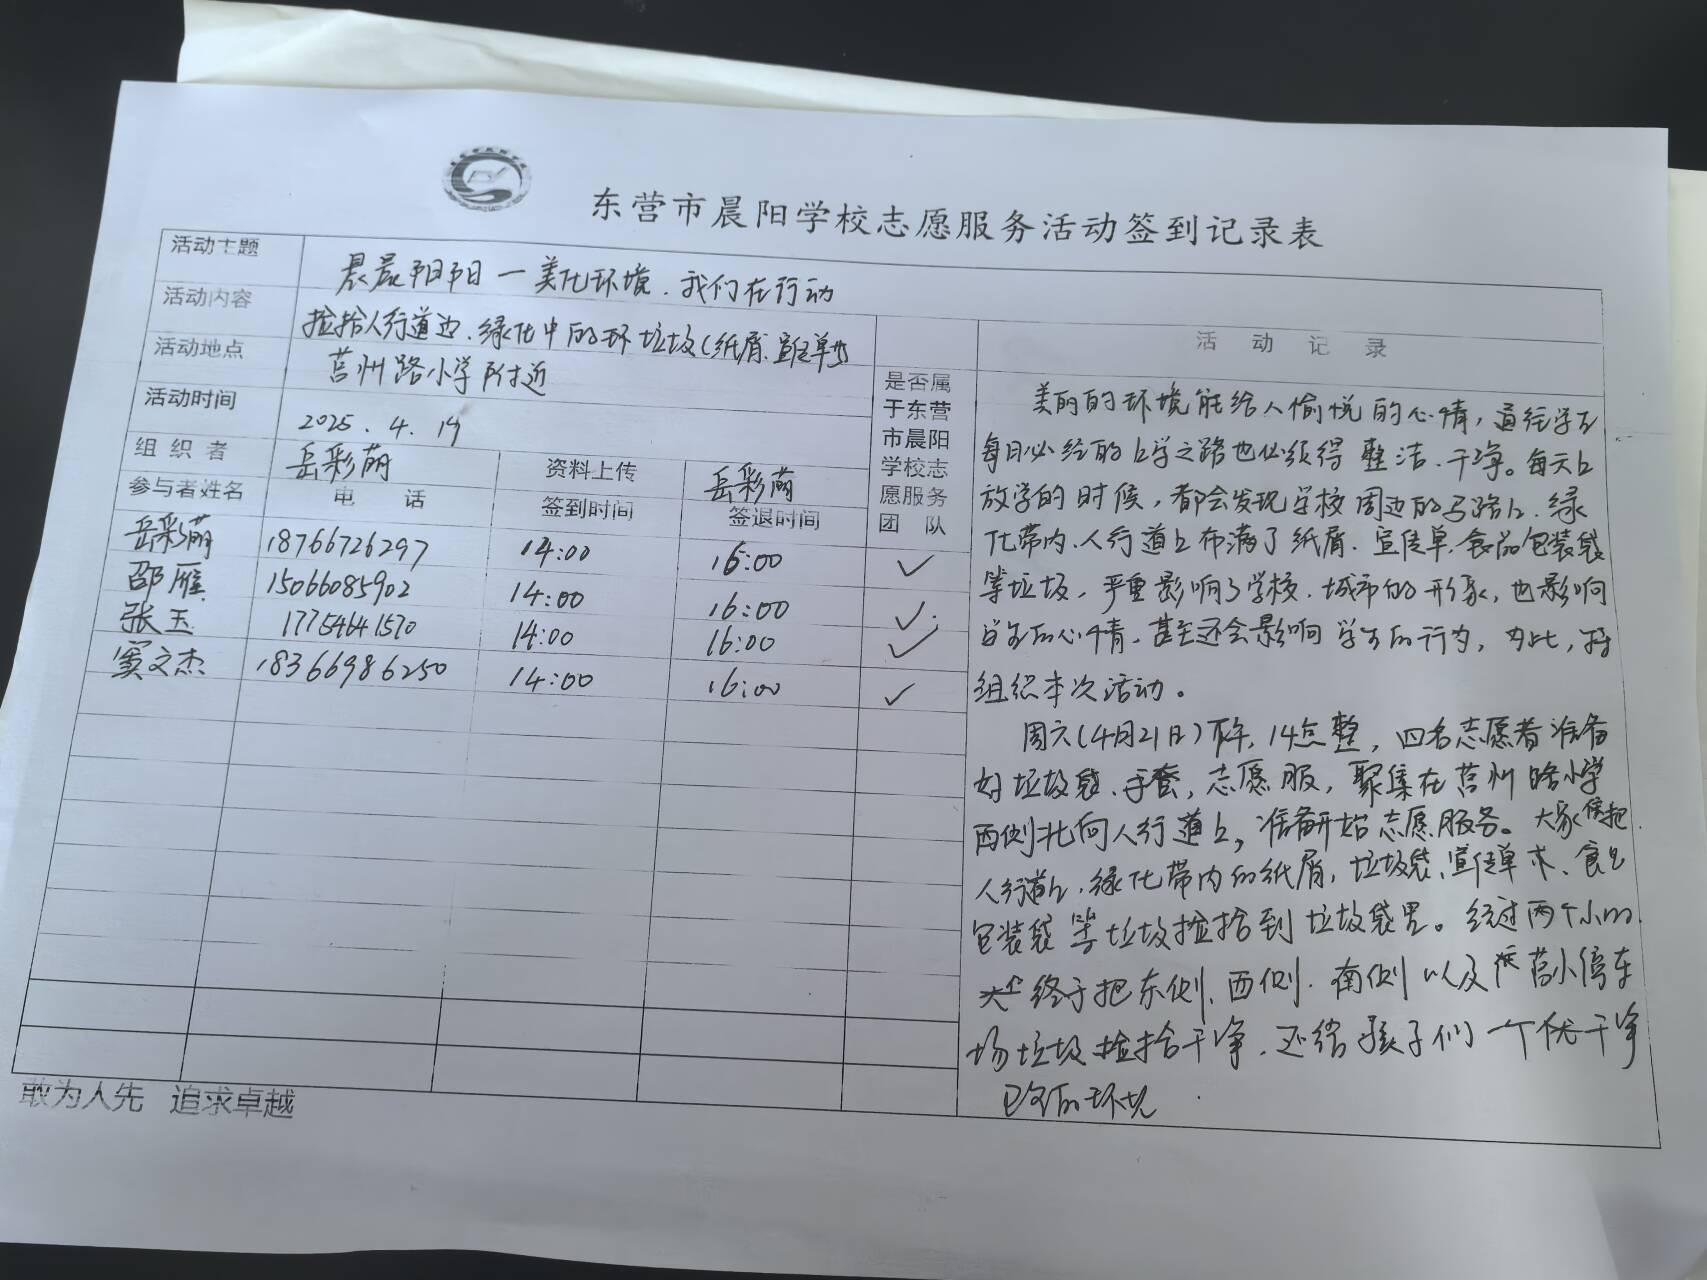 东营市晨阳学校志愿服务活动签到记录表
活动主题 晨晨阳阳一美化环境.我们在行动
活动内容 捡拾人行道边.绿化中的环垃圾(纸屑.宣传单等)
活动地点 莒州路小学附近
活动时间 2025.4.19
组织者 岳彩萌 资料上传 岳彩萌
参与者姓名 电话 签到时间 签退时间
是否属
于东营
市晨阳
学校志
愿服务
团队
岳彩萌 18766726297 14:00 16:00 ✓
邵雁 15066085902 14:00 16:00 ✓
张玉 17754641570 14:00 16:00 ✓
窦文杰 18366986250 14:00 16:00 ✓
活动记录
美丽的环境能给人愉悦的心情，通往学校
每日必经的上学之路也必须得整洁.干净。每天上
放学的时候，都会发现学校周边的马路上.绿
化带内.人行道上布满了纸屑.宣传单.食品包装袋
等垃圾，严重影响了学校.城市的形象，也影响
学生的心情.甚至还会影响学生的行为，为此，特
组织本次活动。
周六(4月21日)下午，14点整，四名志愿者准备
好垃圾袋.手套，志愿服，聚集在莒州路小学
西侧北向人行道上，准备开始志愿服务。大家把
人行道上.绿化带内的纸屑，垃圾袋、宣传单、食品
包装袋等垃圾捡拾到垃圾袋里。经过两个小时.
终于把东侧.西侧.南侧以及莒小停车
场垃圾捡拾干净.还给孩子们一个干净
的环境
敢为人先 追求卓越